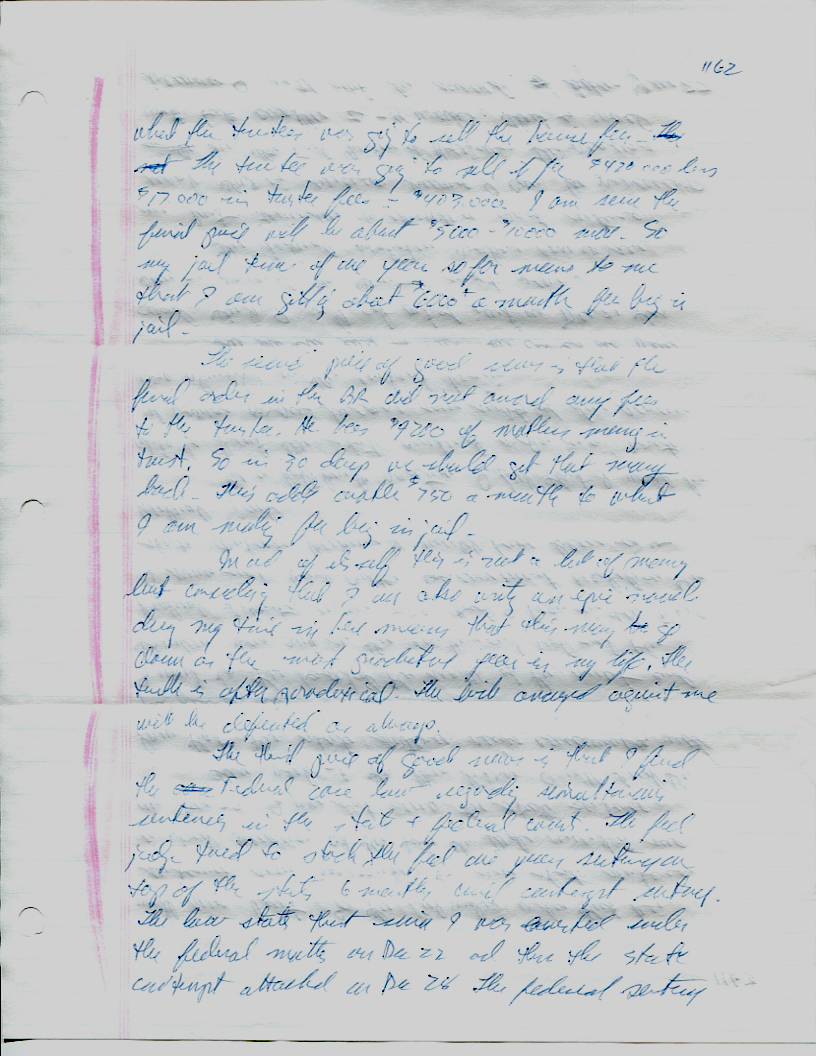 1162
what the trustee was going to sell the house for - The
not the trustee was going to sell it for $420,000 less
$17,000 in trustee fees = $403,000. I am sure the
final price will be about $5000 - $10000 more. So
my jail time of one year so far means to me
that I am getting about $6000+ a month for being in
jail -
The second piece of good news is that the
final order in the BR did not award any fees
to the trustee. He has $9200 of mothers money in
trust. So in 30 days we should get that money
back - This adds another $750 a month to what
I am making for being in jail -
In and of itself this is not a lot of money
but considering that I am also writing an epic novel
during my time in here means that this may be go
down as the most productive year in my life. The
truth is often paradoxical. The evil arrayed against me
will be defeated as always.
The third piece of good news is that I find
the Federal case law regarding simultaneous
sentences in the state + federal courts. The fed
judge tried to stack the fed one year sentence on
top of the state 6 months civil contempt sentence.
The law states that since I was arrested under
the federal matter on Dec 22 and then the state
contempt attached on Dec 28 The federal sentence